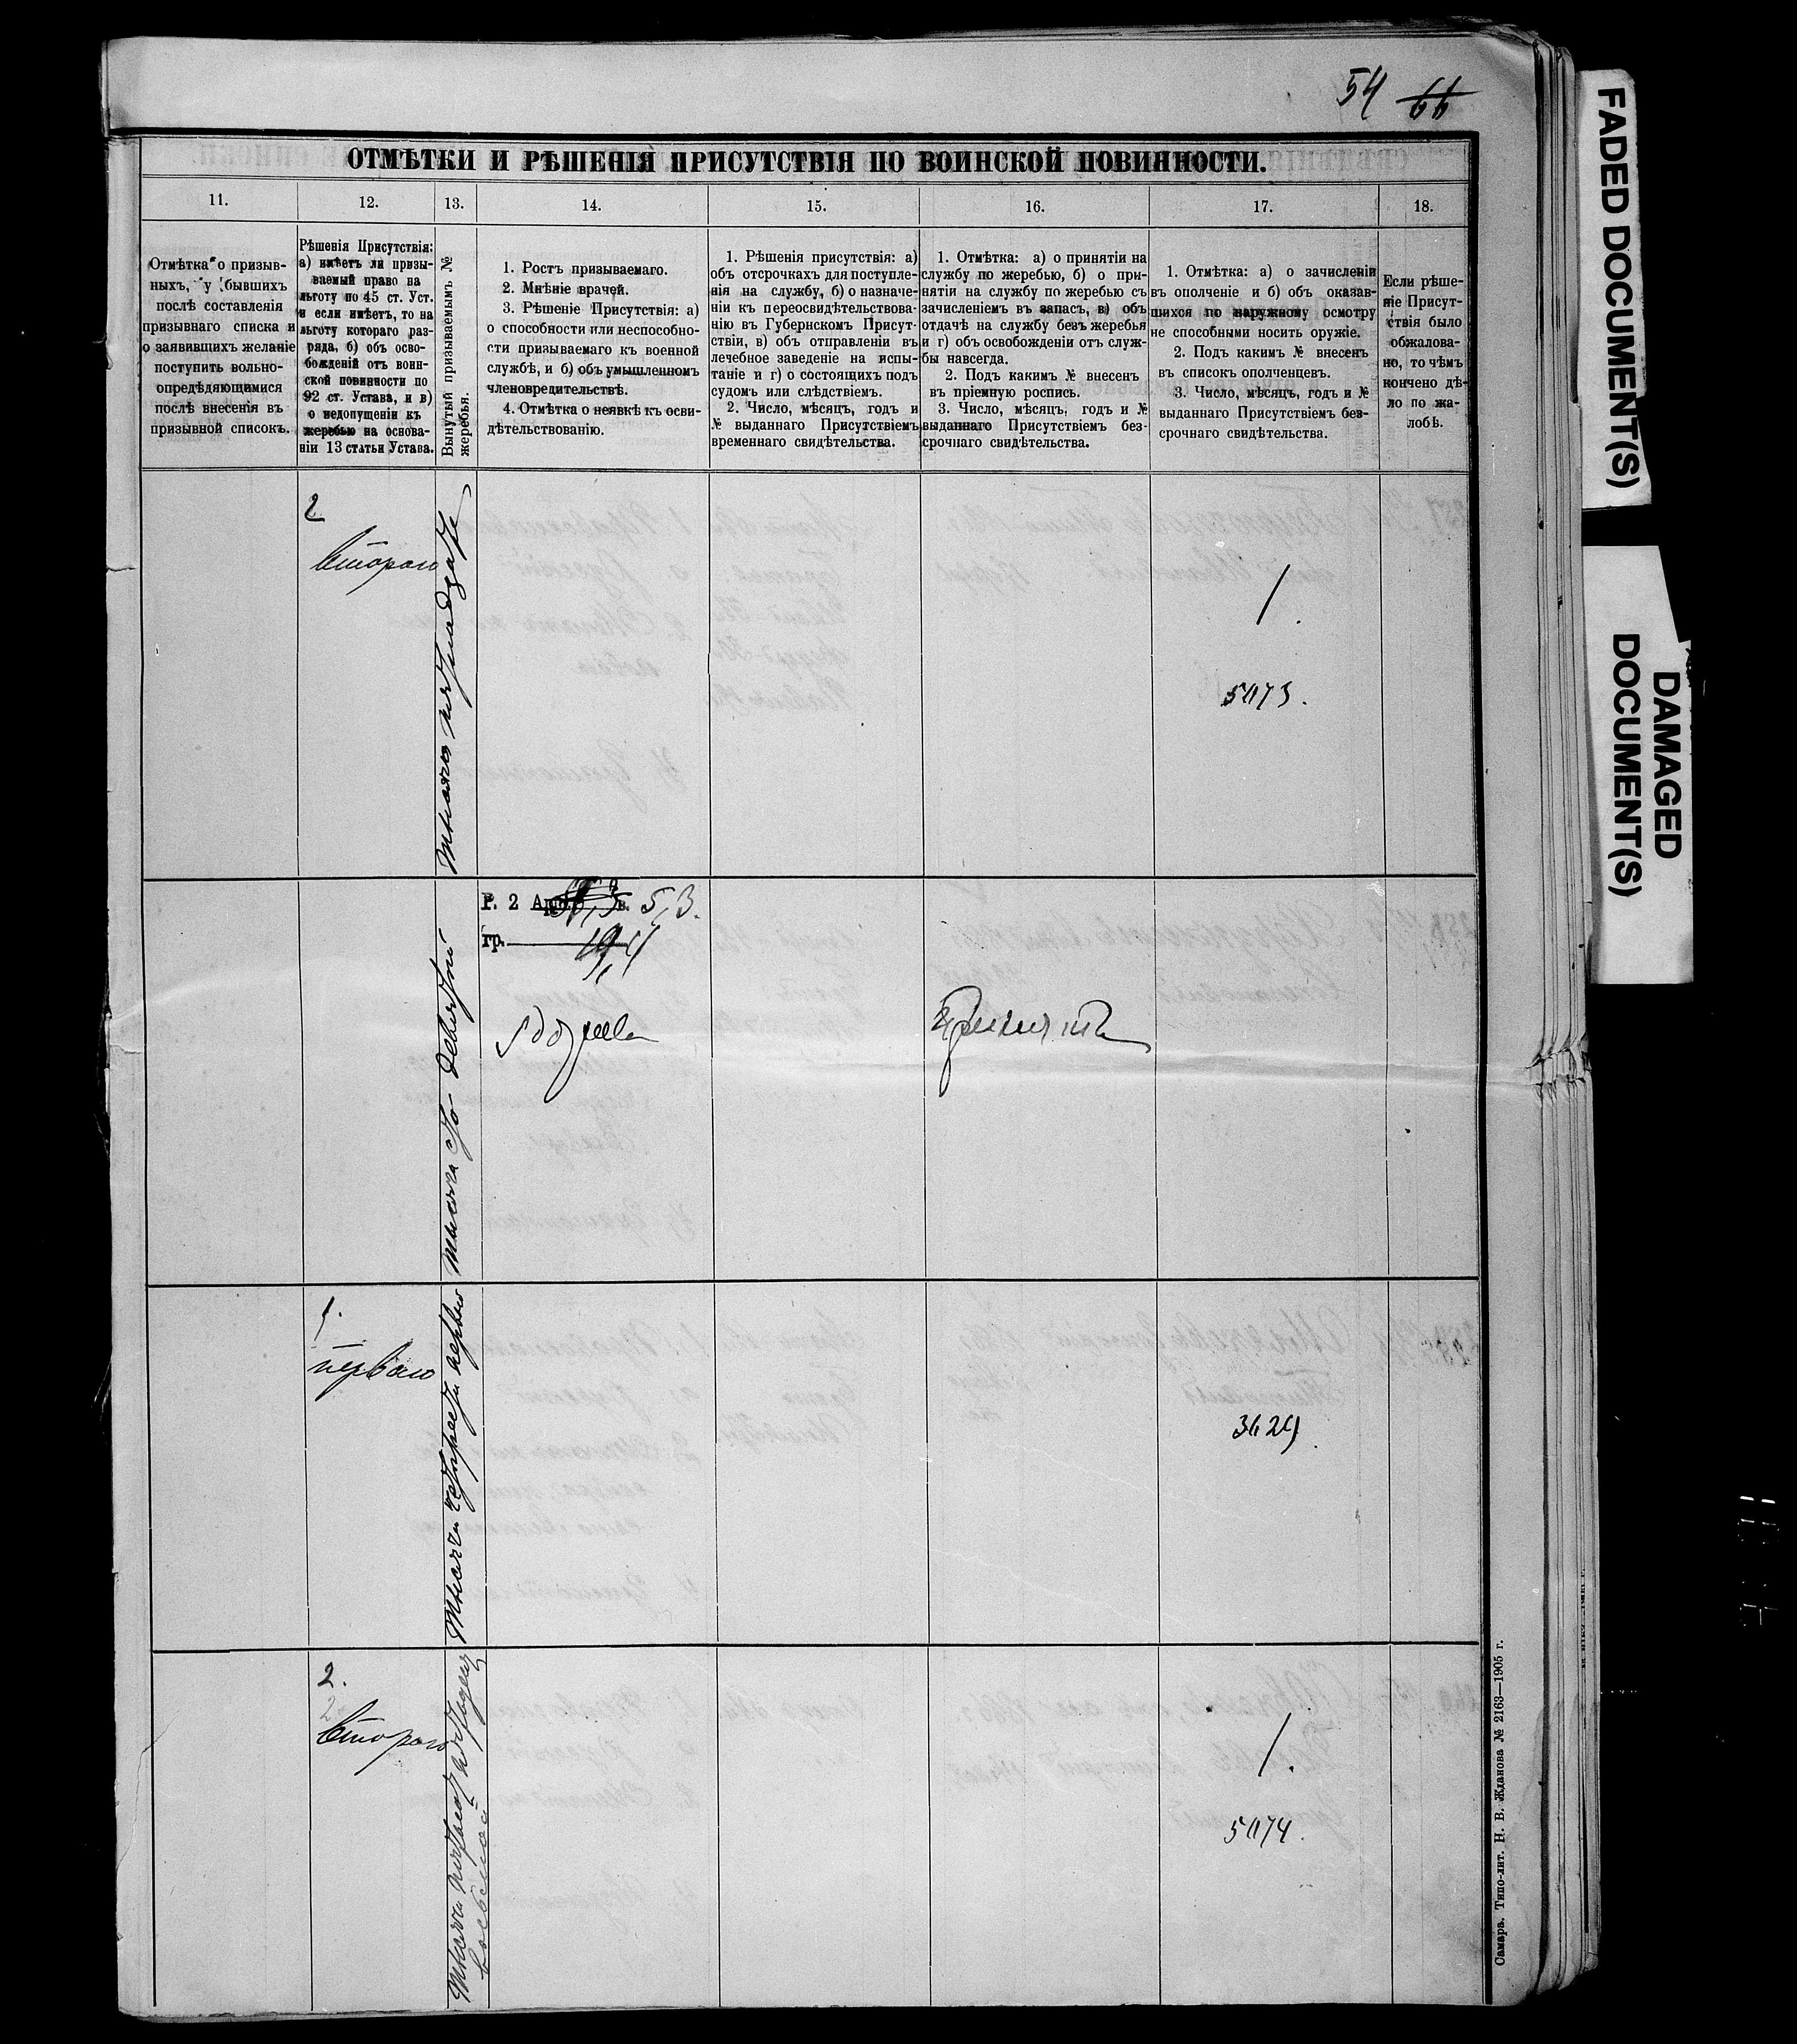 54 66
ОТМѢТКИ И РѢШЕНІЯ ПРИСУТСТВІЯ ПО ВОИНСКОЙ ПОВИННОСТИ.
11.
12.
13.
14.
15.
16.
17.
18.
Отмѣтка о призыв-
ныхъ, у бывшихъ
послѣ составленія
призывнаго списка и
о заявившихъ желаніе
поступить вольно-
опредѣляющимися
послѣ внесенія въ
призывной списокъ.
Рѣшенія Присутствія:
а) имѣетъ ли призы-
ваемый право на
льготу по 45 ст. Уст.
и если имѣетъ, то на
льготу котораго раз-
ряда, б) объ осво-
божденій отъ воин-
ской повинности по
92 ст. Устава, и в)
о недопущеніи къ
жеребью на основа-
ніи 13 статьи Устава.
Вынутый призываемымъ №
жеребья.
1. Ростъ призываемаго.
2. Мнѣніе врачей.
3. Рѣшеніе Присутствія: а)
о способности или неспособно-
сти призываемаго къ военной
службѣ, и б) объ умышленномъ
членовредительствѣ.
4. Отмѣтка о неявкѣ къ осви-
дѣтельствованію.
1. Рѣшенія присутствія: а)
объ отсрочкахъ для поступле-
нія на службу, б) о назначе-
ніи къ переосвидѣтельствова-
нію въ Губернскомъ Присут-
ствіи, в) объ отправленіи въ
лечебное заведеніе на испы-
таніе и г) о состоящихъ подъ
судомъ или слѣдствіемъ.
2. Число, мѣсяцъ, годъ и
№ выданнаго Присутствіемъ
временнаго свидѣтельства.
1. Отмѣтка: а) о принятіи на
службу по жеребью, б) о при-
нятіи на службу по жеребью съ
зачисленіемъ въ запасъ, в) объ
отдачѣ на службу безъ жеребья
и г) объ освобожденіи отъ служ-
бы навсегда.
2. Подъ какимъ № внесенъ
въ пріемную роспись.
3. Число, мѣсяцъ, годъ и №
выданнаго Присутствіемъ без-
срочнаго свидѣтельства.
1. Отмѣтка: а) о зачисленіи
въ ополченіе и б) объ оказав-
шихся по наружному осмотру
не способными носить оружіе.
2. Подъ какимъ № внесенъ
въ списокъ ополченцевъ.
3. Число, мѣсяцъ, годъ и №
выданнаго Присутствіемъ без-
срочнаго свидѣтельства.
Если рѣше-
ніе Присут-
ствія было
обжалова-
но, то чѣмъ
кончено дѣ-
ло по жа-
лобѣ.
2
втораго
1.
Р. 2 Арш. в. 5,3.
гр.
тысяча сто девятый
принятъ
1.
перваго
2.
2
втораго
1.
Самара. Типо-лит. Н. В. Жданова № 2163—1905 г.
FADED DOCUMENT(S)
DAMAGED
DOCUMENT(S)